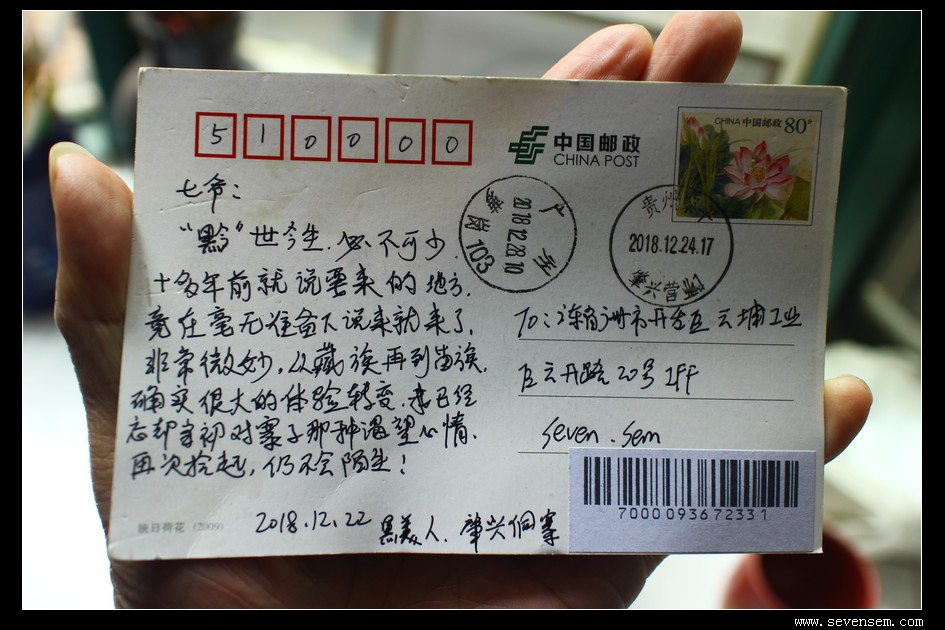 510000
中国邮政
CHINA POST
CHINA 中国邮政 80分
七爷：
“黔”世今生，必不可少，
十多年前就说要来的地方，
竟在毫无准备下说来就来了，
非常微妙，从藏族再到苗族，
确实很大的体验转变，我已经
忘却当初对寨子那种渴望心情，
再次拾起，仍不会陌生！
2018.12.22 黑美人，肇兴侗寨
广州
2018.12.28 10
黄岗 103
贵州
2018.12.24.17
肇兴营
To：广州市开发区云埔工业
区云开路20号1FF
Seven.Sem
7000093672331
映日荷花 (2009)
www.sevensem.com